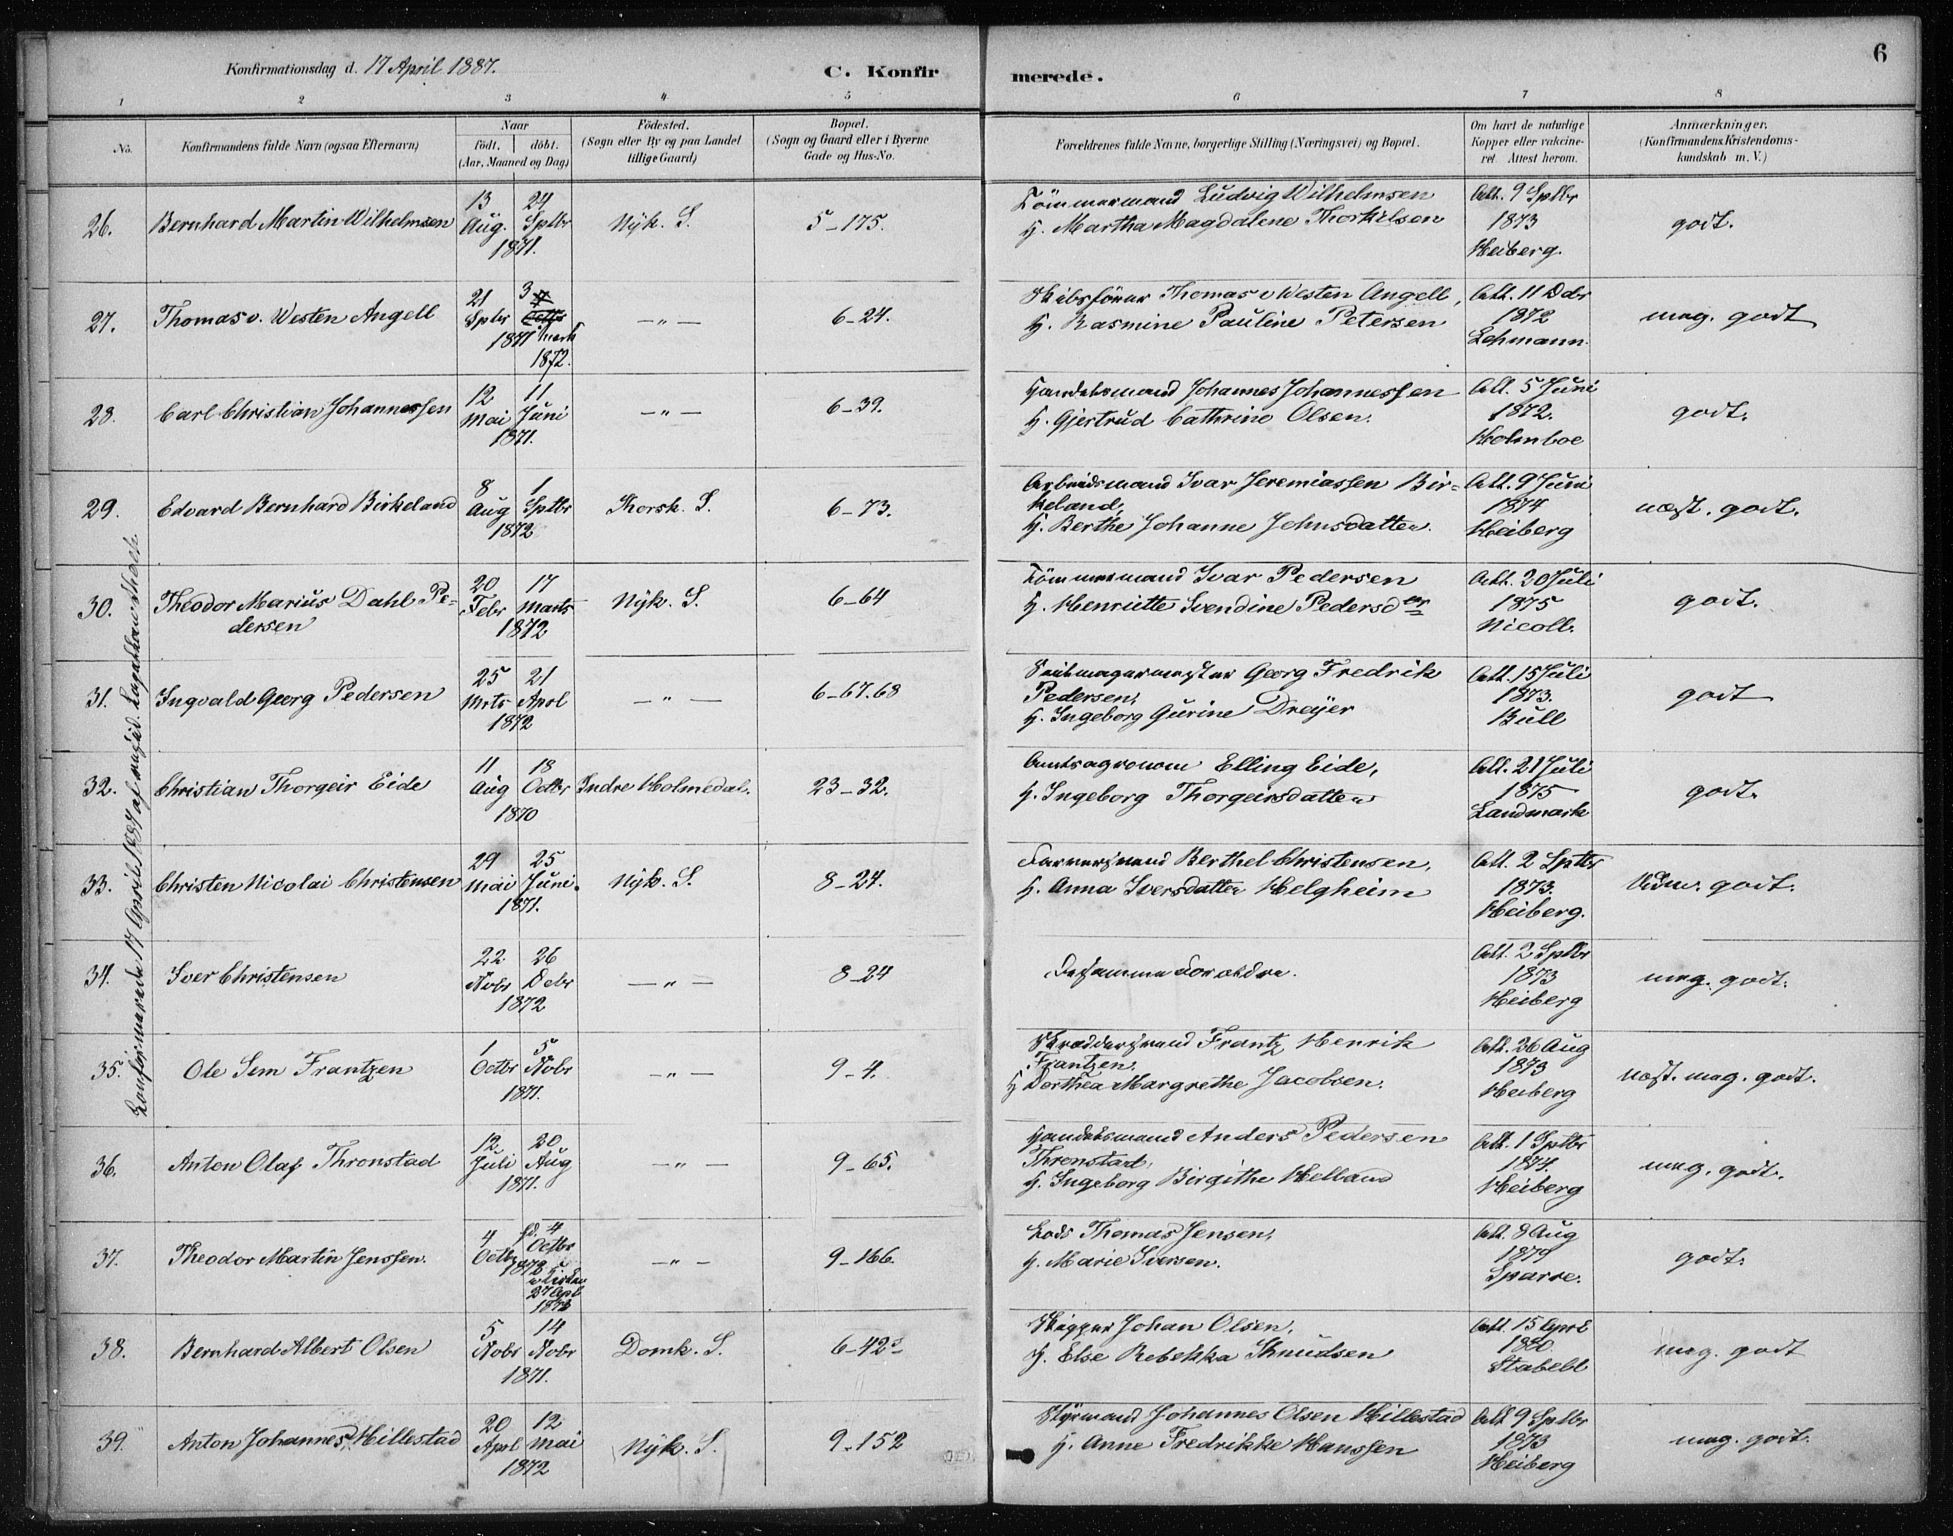 Konfirmationsdag d. 17 April 1887.
C. Konfir
merede.
6
1
2
3
4
5
6
7
8
No.
Konfirmandens fulde Navn (ogsaa Efternavn)
Naar
födt. döbt.
(Aar, Maaned og Dag)
Födested.
(Sogn eller By og paa Landet
tillige Gaard)
Bopæl.
(Sogn og Gaard eller i Byerne
Gade og Hus-No.
Forældrenes fulde Navne, borgerlige Stilling (Næringsvei) og Bopæl.
Om havt de naturlige
Kopper eller vakcine-
ret. Attest herom.
Anmærkninger.
(Konfirmandens Kristendoms-
kundskab m. V.)
26. Bernhard Martin Wilhelmsen
13 24
Aug. Sptbr
1871.
Nyk. S.
5-175.
Tömmermand Ludvig Wilhelmsen
H. Martha Magdalene Thorkilsen
Att. 9 Sptbr
1873
Heiberg.
godt.
27. Thomas v. Westen Angell
21 3
Sptbr Octbr
1871 Marts
1872.
— " —
6-24.
Skibsförer Thomas v Westen Angell,
H. Rasmine Pauline Petersen
Att. 11 Dcbr
1872
Lehmann.
meg. godt
28. Carl Christian Johannessen
12 11
Mai Juni
1871.
— " —
6-39.
Handelsmand Johannes Johannessen
H. Gjertrud Cathrine Olsen.
Att. 5 Juni
1872.
Holmboe
godt.
29. Edvard Bernhard Birkeland
8 1
Aug Sptbr
1872
Korsk. S.
6-73.
Arbeidsmand Ivar Jeremiassen Bir-
keland,
H. Berthe Johanne Johnsdatter.
Att. 9 Juni
1874
Heiberg
næst. godt.
30. Theodor Marius Dahl Pe-
dersen
20 17
Febr Marts
1872
Nyk. S.
6-64
Tömmermand Ivar Pedersen
H. Henriette Svendine Pedersdtr
Att. 30 Juli
1875
Nicoll.
godt.
31. Ingvald Georg Pedersen
25 21
Mrts Aprl
1872
— " —
6-67.68
Seilmagermester Georg Fredrik
Pedersen,
H. Ingeborg Gurine Dreyer
Att. 15 Juli
1873.
Bull
godt
32. Christian Thorgeir Eide
11 13
Aug Octbr
1870
Indre Holmedal.
23-32.
Amtsagronom Elling Eide,
H. Ingeborg Thorgeirsdatter
Att. 21 Juli
1875
Landmark
godt.
33. Christen Nicolai Christensen
29 25
Mai Juni.
1871.
Nyk. S.
8-24.
Farversvend Berthel Christensen,
H. Anna Iversdatter Helgheim
Att. 2 Sptbr
1873.
Heiberg.
godt.
34. Iver Christensen
22 26
Novbr Debr
1872
— " —
8-24
De samme Forældre.
Att. 2 Sptbr
1873
Heiberg
meg. godt.
35. Ole Sem Frantzen
1 5
Octbr Novbr
1871.
— " —
9-4.
Skræddersvend Frantz Henrik
Frantzen,
H Dorthea Margrethe Jacobsen.
Att. 26 Aug
1873
Heiberg
næst. meg. godt.
36. Anton Olaf Thronstad
12 20
Juli Aug
1871.
— " —
9-65.
Handelsmand Anders Pedersen
Thronstad,
H. Ingeborg Birgithe Helland
Att. 1 Sptbr
1874.
Heiberg
meg. godt.
37. Theodor Martin Jenssen.
4 hd. 4
Octbr Octbr
1872 i Kirken
27 Apl
1873
— " —
9-166.
Lods Thomas Jensen,
H. Marie Iversen.
Att. 8 Aug
1879
Sparre.
godt.
38. Bernhard Albert Olsen
5 14
Novbr Novbr
1871.
Domk. S.
6-42
Skipper Johan Olsen,
H. Else Rebekka Knudsen
Att. 15 Aprl
1880
Stabell
meg. godt
39. Anton Johannes Hillestad
20 12
Aprl Mai
1872
Nyk. S.
9-152
Styrmand Johannes Olsen Hillestad
H. Anne Fredrikke Hanssen
Att 9 Sptbr
1873
Heiberg
meg. godt.
Konfirmerede 17 April 1887 af resid. Kapellan